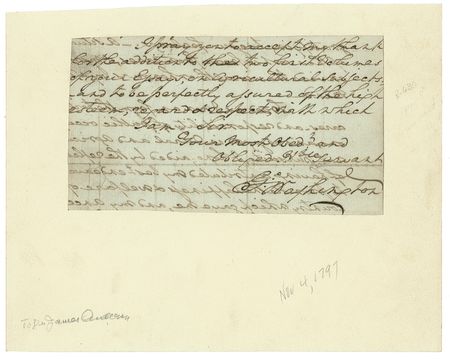 I pray you to accept my thank
for the addition to the two first Volumes
of your Essays, on Agricultural subjects,
and to be perfectly assured of the high
esteem, and respect, with which
I am Sir
Your Most Obedt and
Obliged Servant
Go: Washington
Nov 4, 1797
To Dr James Anderson